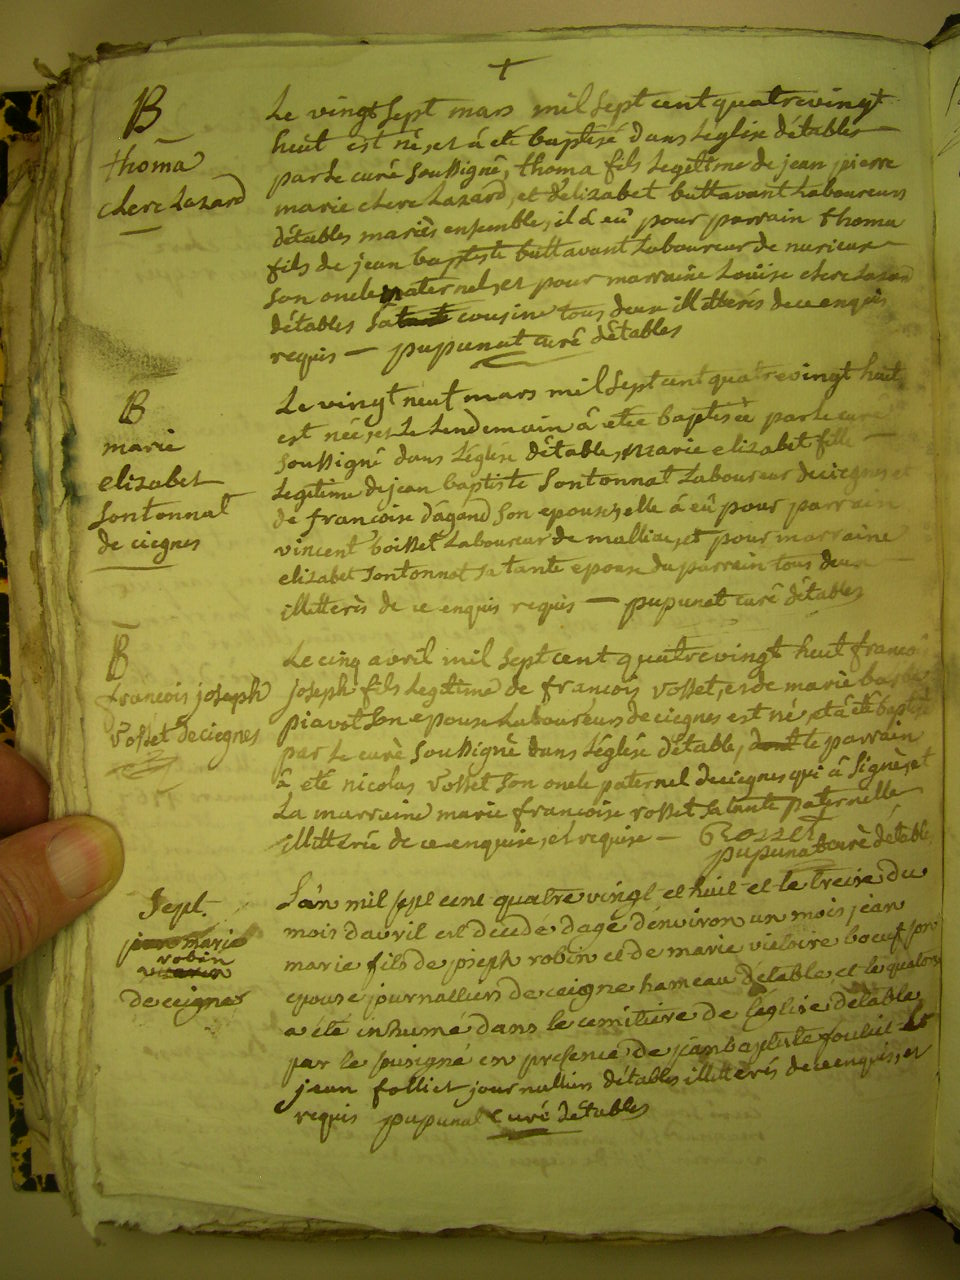 +
B
thoma
clerc Lazard
Le vingt sept mars mil sept cent quatre vingt
huit est né, et á eté baptisé dans Léglise détables
par Le curé Soussigné, thoma fils Legitime de jean pierre
marie clerc Lazard, et délizabet buttavant Laboureurs
détables mariés ensemble, il á eû pour parrain thoma
fils de jean baptiste buttavant Laboureur de
son oncle maternel, et pour marraine Louise clerc Lazard
détables Sa tante cousine tous deux illitterés de ce enquis
requis — pupunat curé détables
B
marie
elizabet
Sontonnat
de ciegnes
Le vingt neuf mars mil sept cent quatre vingt huit
est née, et Le Lendemain â etée baptisée par Le curé
soussigné dans Léglise détables, marie elizabet fille
Legitime de jean baptiste Sontonnat Laboureur de ciegnes et
de francoise dágand Son epouse, elle á eû pour parrain
vincent boisset Laboureur de malliat, et pour marraine
elizabet Sontonnat sa tante epouse du parrain tous deux
illitterés de ce enquis requis — pupunat curé détables
B
francois joseph
Vosset de ciegnes
Le cinq avril mil sept cent quatre vingt huit francois
joseph fils Legitime de francois Vosset, et de marie
piavot Son epouse Laboureurs de ciegnes est né, et á été baptisé
par Le curé Soussigné dans Léglise détable, dont le parrain
â eté nicolas Vosset Son oncle paternel de ciegnes qui â Signé, et
La marraine marie francoise rosset Sa tante paternelle
illitterée de ce enquise, et requise — Rosset
pupunat curé détable
Sept.
jean marie
robin
de ceignes
L'an mil sept cent quatre vingt et huit et le treize du
mois d'avril est décédé d'agé d'environ un mois jean
marie fils de joseph robin et de marie victoire boeuf son
epouse journalliers de ceigne hameau détable, et le quatorze
a été inhumé dans le cemitiere de l'eglise détable
par le susigné en presence de jean baptiste folliet et
jean folliet journalliers détables illitterés de ce enquis, et
requis pupunat curé détables